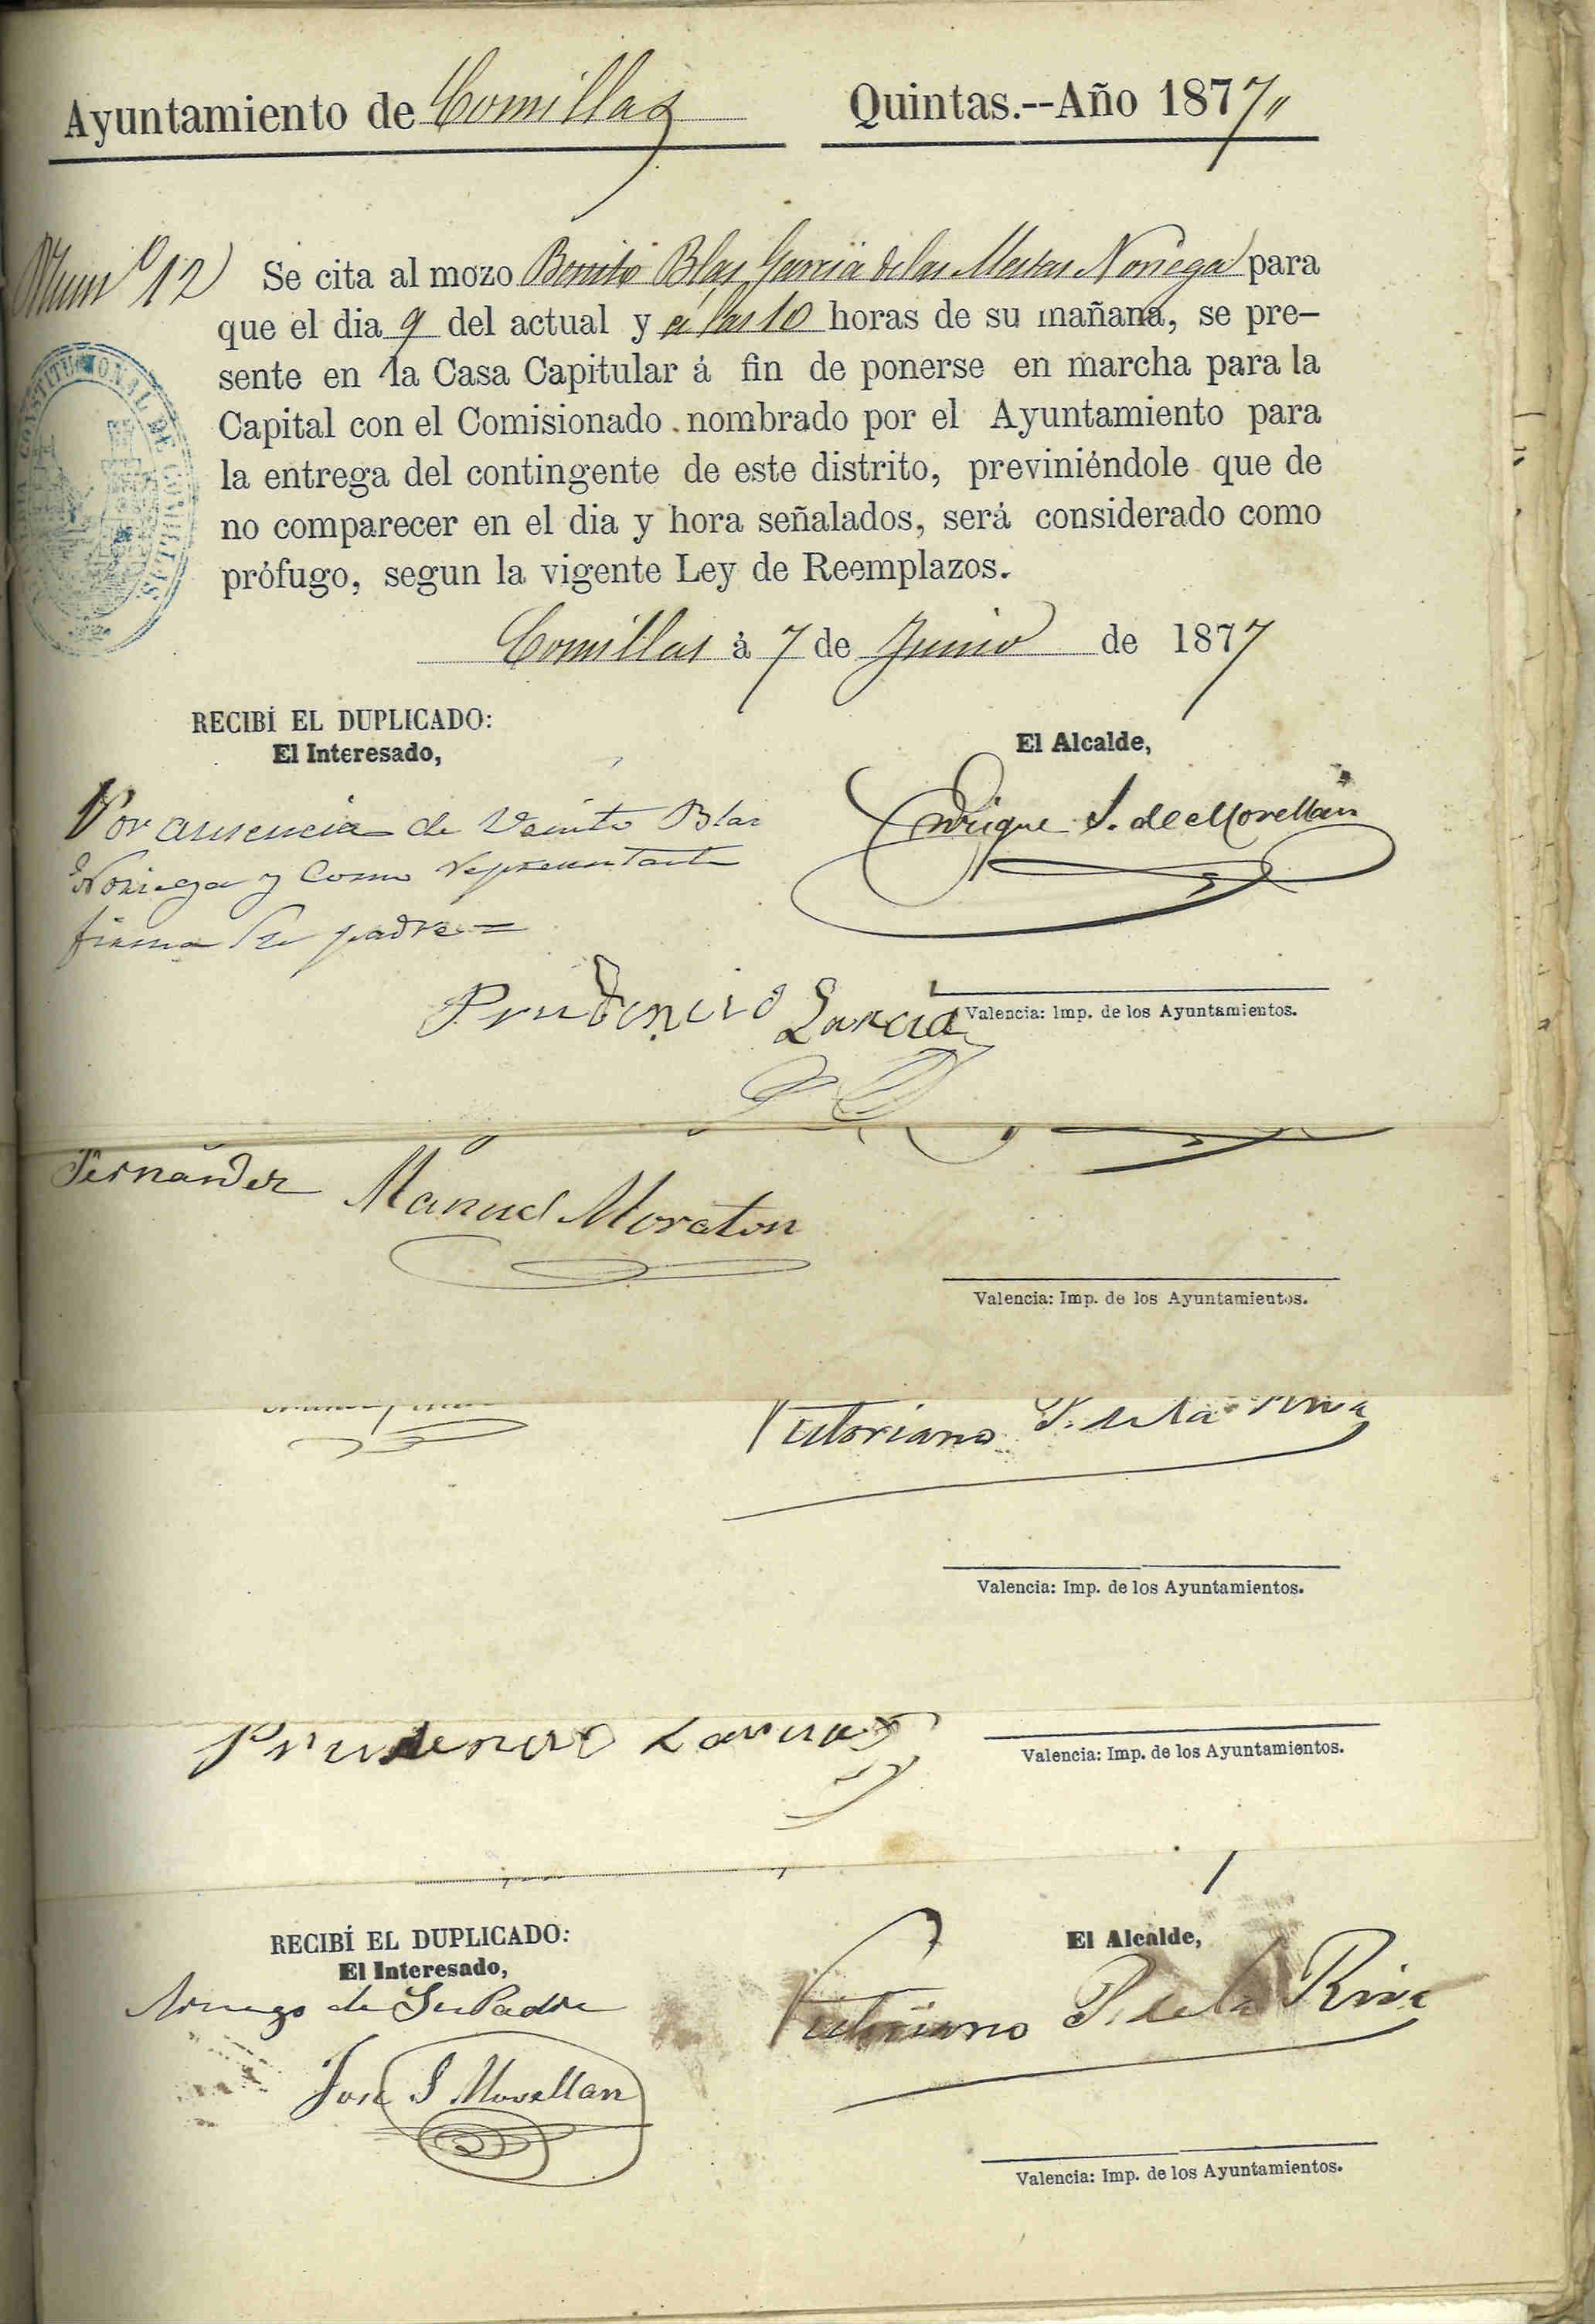 Ayuntamiento de Comillas Quintas.--Año 1877
Num.º 12 Se cita al mozo Benito Blas Garcia de las Mestas Noriega para
que el dia 9 del actual y á las 10 horas de su mañana, se pre-
sente en la Casa Capitular á fin de ponerse en marcha para la
Capital con el Comisionado nombrado por el Ayuntamiento para
la entrega del contingente de este distrito, previniéndole que de
no comparecer en el dia y hora señalados, será considerado como
prófugo, segun la vigente Ley de Reemplazos.
Comillas á 7 de Junio de 1877
RECIBÍ EL DUPLICADO:
El Interesado,
El Alcalde,
Por ausencia de Venito Blas
Noriega y como representante
firma su padre =
Enrique S. de Movellan
Prudencio Garcia
Valencia: Imp. de los Ayuntamientos.
Fernandez Manuel Moraton
Valencia: Imp. de los Ayuntamientos.
Victoriano P. de la Riva
Valencia: Imp. de los Ayuntamientos.
Prudencio Garcia
Valencia: Imp. de los Ayuntamientos.
RECIBÍ EL DUPLICADO:
El Interesado,
El Alcalde,
A ruego de Su Padre
Victoriano P. de la Riva
Jose S Movellan
Valencia: Imp. de los Ayuntamientos.